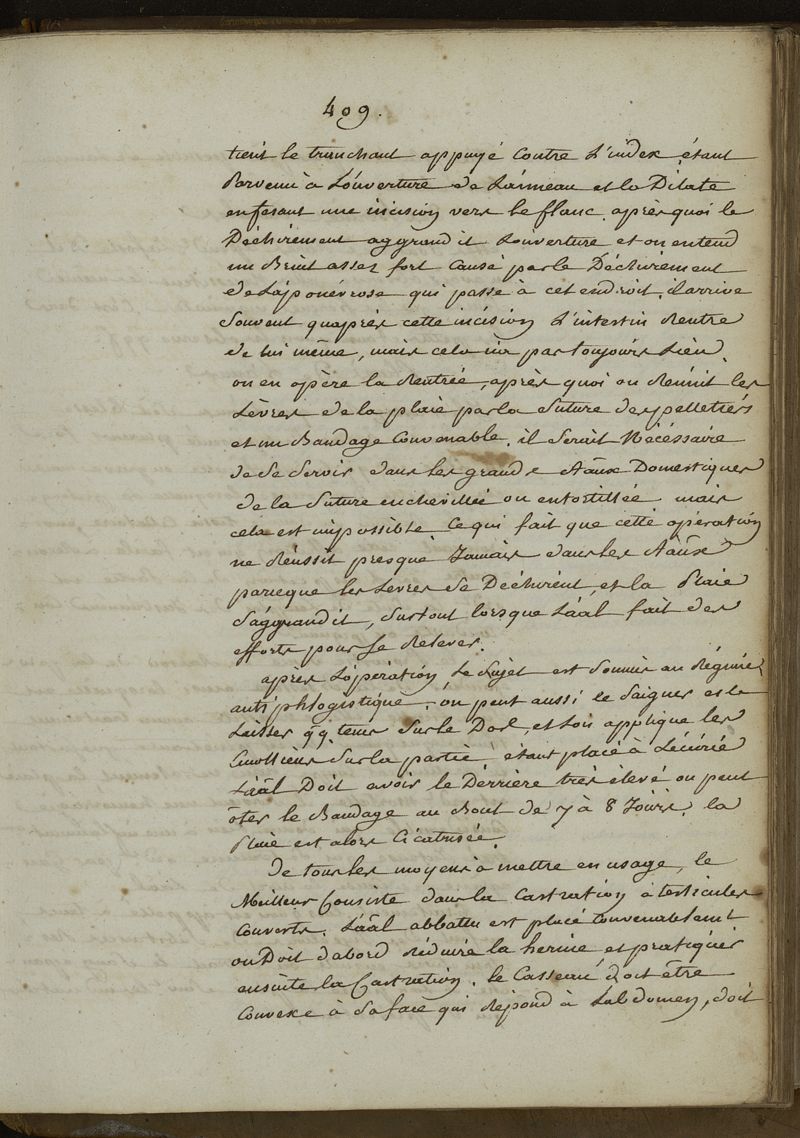 409.
tient le tranchant appuyé contre L'index étant
Parvenu à L'ouverture de L'anneau et la Dilate
en fesant une incision vers le flanc. après quoi le
Déchirement aggrandit L'ouverture et on entend
un Bruit assez fort Causé par le Déchirement
de L'aponévrose qui passe à cet endroit. il arrive
Souvent qu'après cette incision L'intestin Rentre
de lui même, mais cela n'a pas toujours Lieu.
on en opère la Rentrée, après quoi on Réunit les
Lèvres de la plaie par la Suture des pelletiers
et un Bandage Convenable. il Serait Nécéssaire
de Se Servir dans les grands Aãux Domestiques
de la Suture enchevillée ou entortillée mais
cela est impossible. Ce qui fait que cette opération
ne Réussit presque Jamais dans les Aãux
parceque les Levres Se Déchirent, et la Plaie
S'aggrandit, Surtout lorsque L'aãl fait des
efforts pour Se Relever.
après L'opération Le Sujet est Soumis au Régime
antiphlogistique. on peut aussi le Saigner et le
Laisser qq. tems Sur le Dos, et L'on applique les
Emolliens Sur la partie. étant placé à L'écurie
L'aãl Doit avoir le Derrière très élevé on peut
ôter le Bandage au Bout de 7 à 8 Jours. la
Plaie est alors Cicatrisée.
De tous les moyens à mettre en usage, le
Meilleur Consiste dans la Castration à testicules
Couverts. L'aãl abbattu est placé Convenablement
on Doit d'abord réduire la hernie et pratiquer
ensuite la Castration. le Casseau doit être
Convexe à Sa face qui Répond à L'abdomen, doit